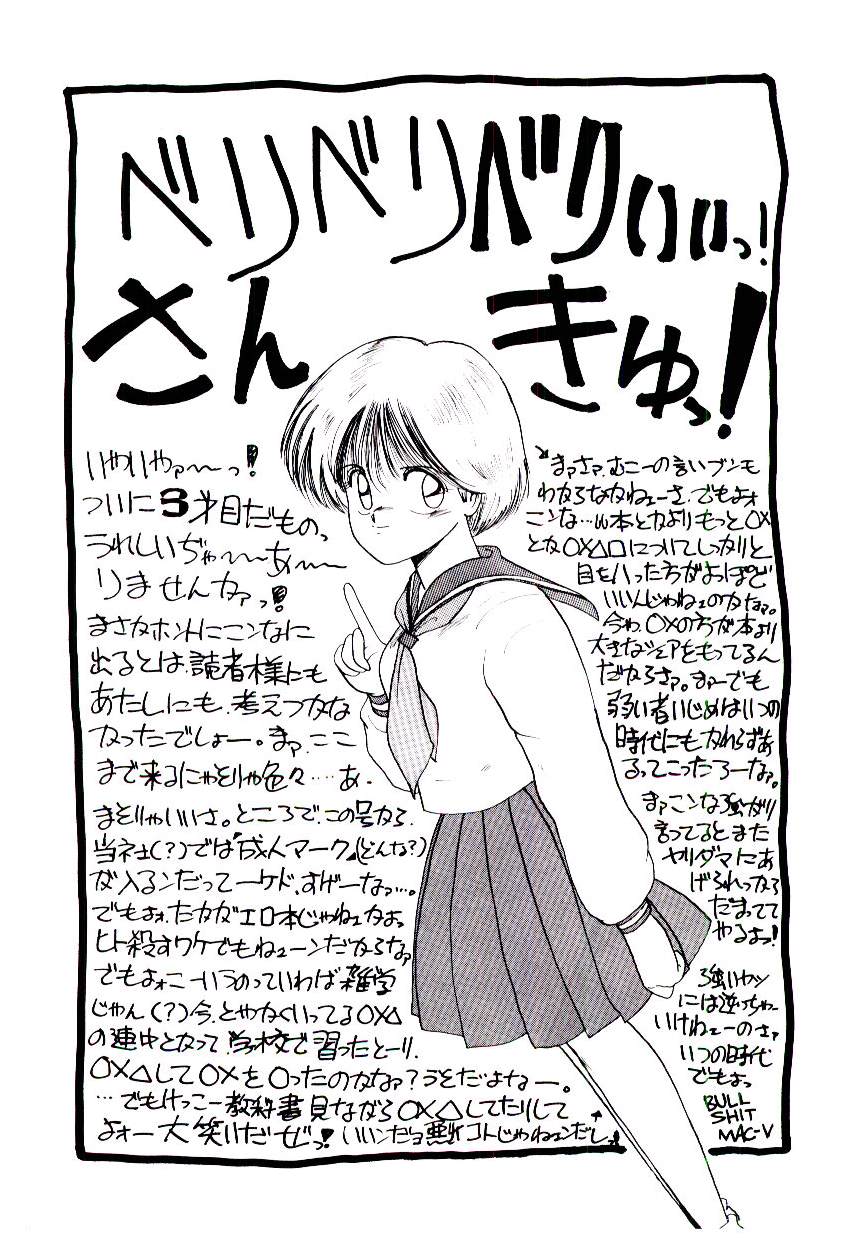 ベリベリベリいいいっ!
さんきゅっ!
いやいやァ〜〜っ!
ついに3才目だものっ
うれしいぢゃ〜〜〜あ〜〜
りませんかァっ!
まさかホントにこンなに
出るとは、読者様にも
あたしにも、考えつかな
かったでしょー。まァ、ここ
まで来るにゃそりゃ色々……あ、
まそりゃいいさ。ところで、この号から、
当社(?)では「成人マーク」(どんな?)
が入るンだってーケド、すげーなァ…。
でもよォ、たかがエロ本じゃねェかよっ
ヒト殺すワケでもねェーンだからなァ
でもよォこーいうのっていわば雑学
じゃん(?)今、とやかくいってる○×△
の連中となって、学校で習ったとーり、
○×△して○×を○ったのかなァ?うそだよなー。
…でもけっこー教科書見ながら○×△してたりして
よォー大笑いだぜっ!いいンだョ悪いコトじゃねェンだしっ
まァさァ、むこーの言いブンも
わからなかねェーさ、でもよォ
こンな…ω本とかよりもっと○×
とか○×△□についてしっかりと
目をハった方がよっぽど
いいんじゃねェのかなァ。
今わ、○×の方が本より
大きなシェアをもってるん
だからさァ。まァーでも
弱い者いじめはいつの
時代にもかわらずあ
るってこったろーなァ。
まァこンな強がり
言ってるとまた
ヤリダマにあ
げられっから
だまってて
やるよっ!
強いヤツ
には逆っちゃー
いけねェーのさァ
いつの時代
でもよっ
BULL
SHIT
MAC-V